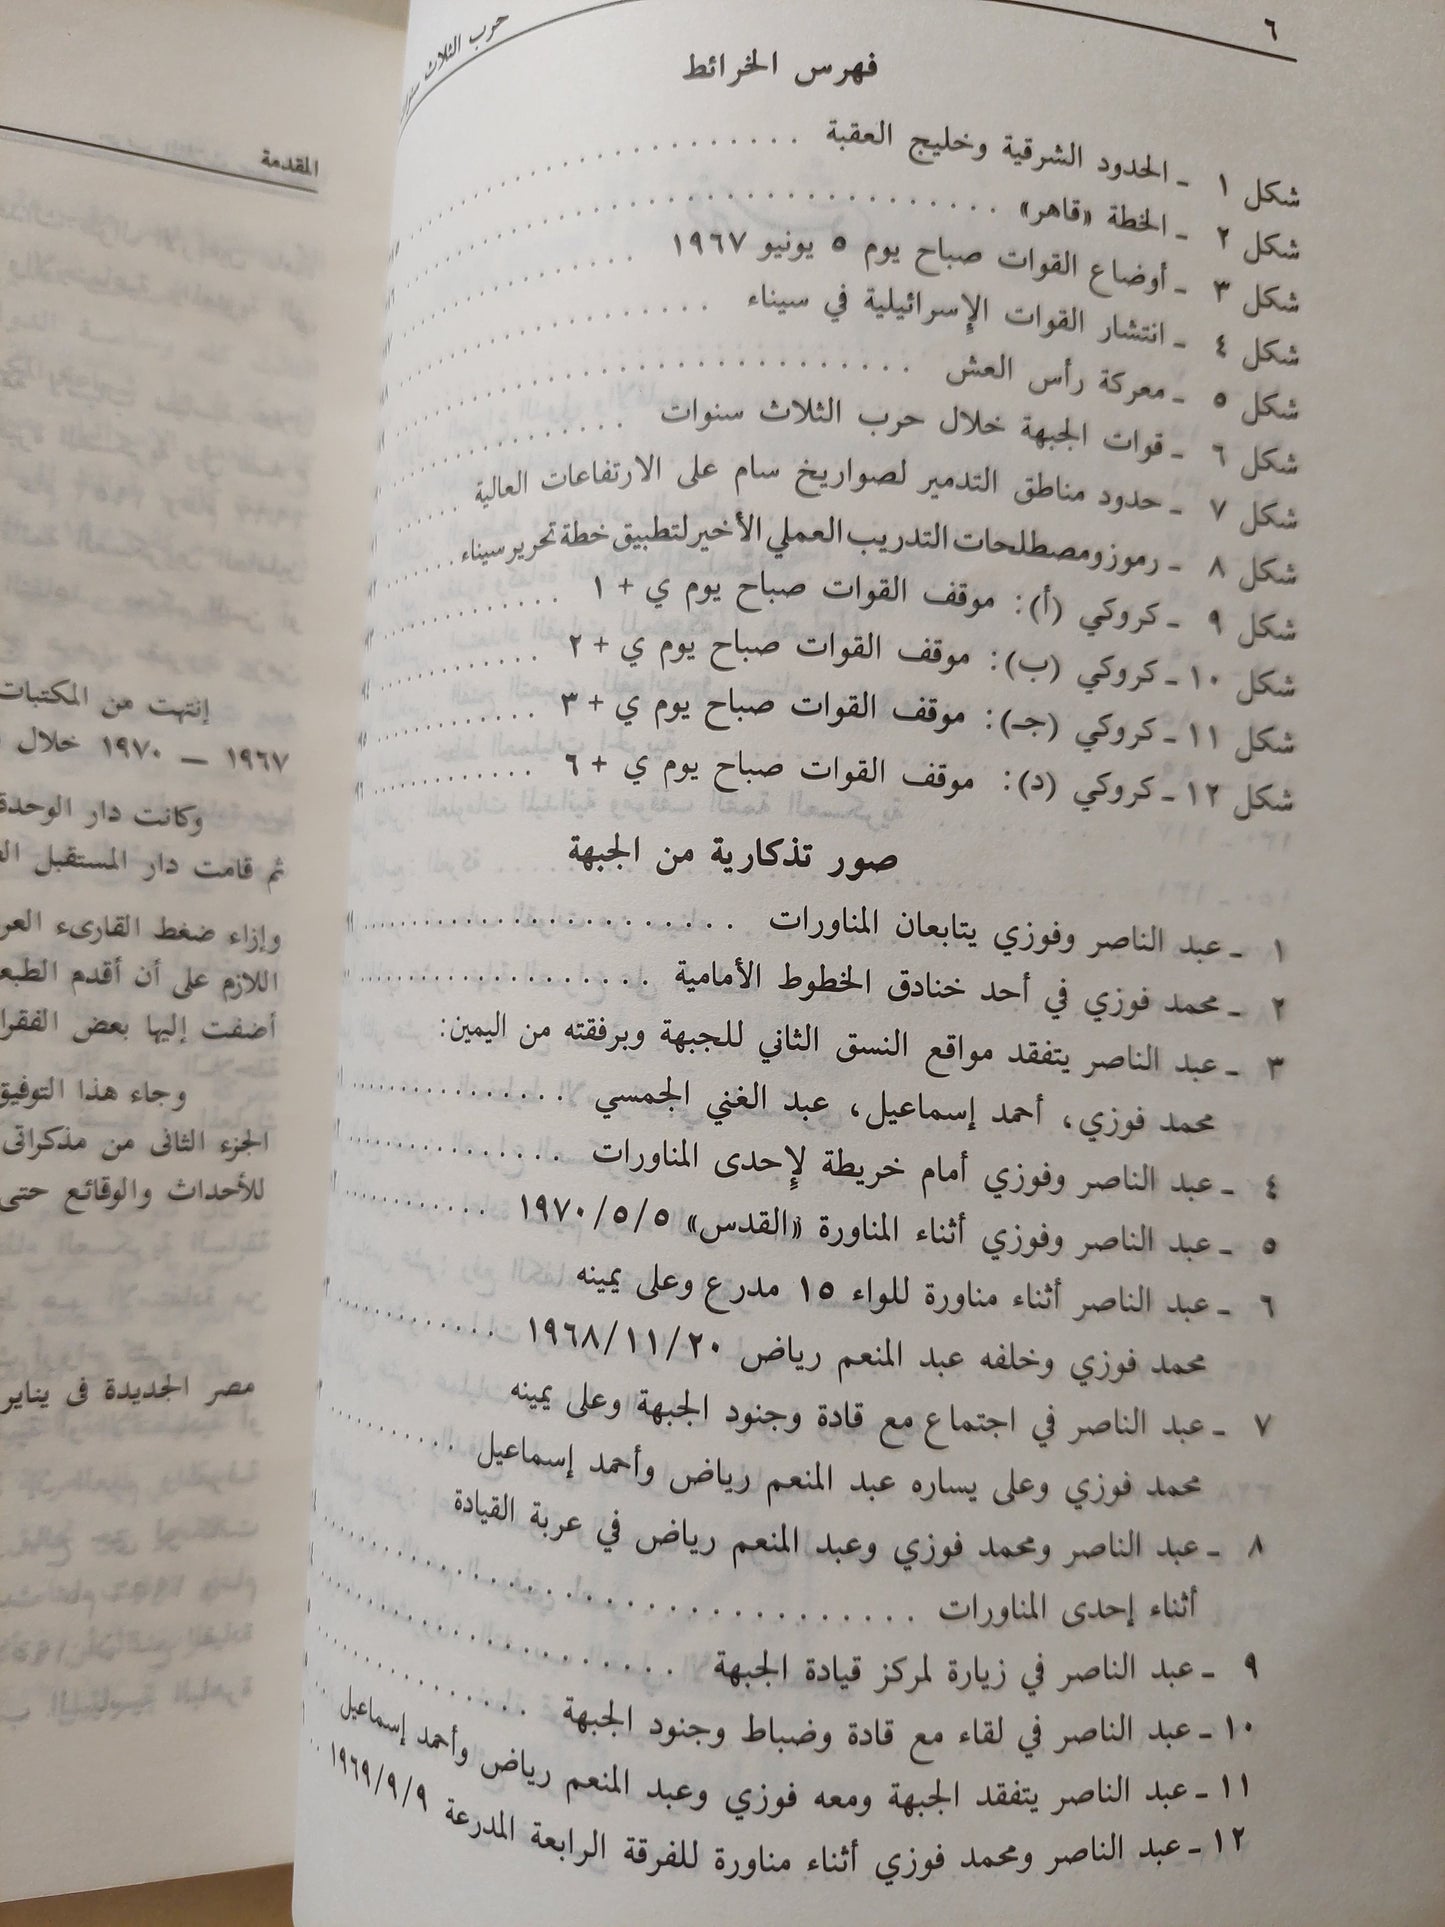 ٦
حرب الثلاث
فهرس الخرائط
شكل ١ ـ الحدود الشرقية وخليج العقبة
شكل ٢ ـ الخطة «قاهر»
شكل ٣ ـ أوضاع القوات صباح يوم ٥ يونيو ١٩٦٧
شكل ٤ ـ انتشار القوات الإسرائيلية في سيناء
شكل ٥ ـ معركة رأس العش
شكل ٦ ـ قوات الجبهة خلال حرب الثلاث سنوات
شكل ٧ ـ حدود مناطق التدمير لصواريخ سام على الارتفاعات العالية
شكل ٨ ـ رموز ومصطلحات التدريب العملي الأخير لتطبيق خطة تحرير سيناء
شكل ٩ ـ كروكي (أ): موقف القوات صباح يوم ي + ١
شكل ١٠ ـ كروكي (ب): موقف القوات صباح يوم ي + ٢
شكل ١١ ـ كروكي (جـ): موقف القوات صباح يوم ي + ٣
شكل ١٢ ـ كروكي (د): موقف القوات صباح يوم ي + ٦
صور تذكارية من الجبهة
١ ـ عبد الناصر وفوزي يتابعان المناورات
٢ ـ محمد فوزي في أحد خنادق الخطوط الأمامية
٣ ـ عبد الناصر يتفقد مواقع النسق الثاني للجبهة وبرفقته من اليمين:
محمد فوزي، أحمد إسماعيل، عبد الغني الجمسي
٤ ـ عبد الناصر وفوزي أمام خريطة لإحدى المناورات
٥ ـ عبد الناصر وفوزي أثناء المناورة «القدس» ١٩٧٠/٥/٥
٦ ـ عبد الناصر أثناء مناورة للواء ١٥ مدرع وعلى يمينه
محمد فوزي وخلفه عبد المنعم رياض ١٩٦٨/١١/٢٠
٧ ـ عبد الناصر في اجتماع مع قادة وجنود الجبهة وعلى يمينه
محمد فوزي وعلى يساره عبد المنعم رياض وأحمد إسماعيل
٨ ـ عبد الناصر ومحمد فوزي وعبد المنعم رياض في عربة القيادة
أثناء إحدى المناورات
٩ ـ عبد الناصر في زيارة لمركز قيادة الجبهة
١٠ ـ عبد الناصر في لقاء مع قادة وضباط وجنود الجبهة
١١ ـ عبد الناصر يتفقد الجبهة ومعه فوزي وعبد المنعم رياض وأحمد إسماعيل
١٢ ـ عبد الناصر ومحمد فوزي أثناء مناورة للفرقة الرابعة المدرعة ١٩٦٩/٩/٩
المقدمة
إنتهت من المكتبات
١٩٦٧ — ١٩٧٠ خلال
وكانت دار الوحدة
ثم قامت دار المستقبل
وإزاء ضغط القارىء
اللازم على أن أقدم
أضفت إليها بعض
وجاء هذا التوفيق
الجزء الثانى من مذكراتى
للأحداث والوقائع حتى
مصر الجديدة فى يناير